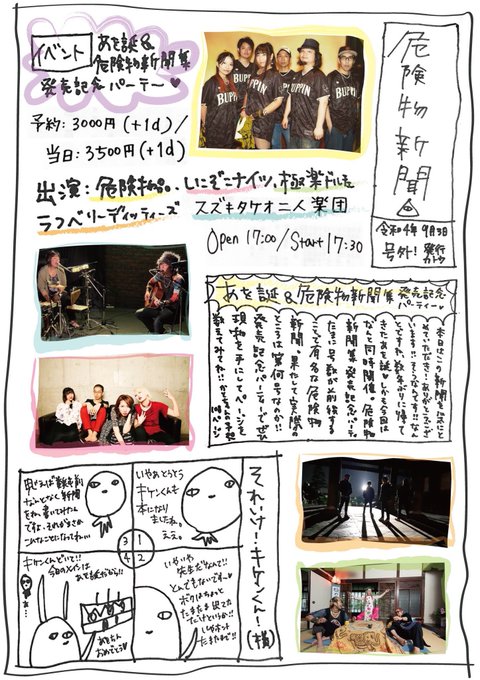 危険物新聞
令和4年9月3日
号外！
発行
カトウ
イベント
あを誕&
危険物新聞集
発売記念パーテー
予約：3000円(+1d)/
当日：3500円(+1d)
出演：危険物。、しにぞこナイツ、極楽ドルヒ
ラフベリーディッティーズ
スズキタケオ二人楽団
Open 17:00/Start 17:30
BUPPIN
BUPPIN
BUPPIN
BUPPIN
あを誕&危険物新聞集 発売記念
パーティー
本日はこの新聞をお気にと
めていただき！ありがとうござ
います！！そうなんです！！なん
とですね、数年ぶりに帰って
きたあを誕しかも今回は
なんと同時開催。危険物
新聞集発売記念パーティ
たまに号数が前後する
ことで有名な危険物
新聞。果たして実際の
ところは実何号なのか！！
発売記念パーティーでぜひ
現物を手にしてページを
数えてみてね！！
それいけ！キケンくん！
(横)
1
いやぁとうとう
キケンくんも
本に
なりまし
たね。
ええ。
2
いやいや
先生だなんて！！
とんでもないです〜
ボクはちょっと
たまたま出てた
だけというか！！
いやホント
たまたまで！！
3
なんとなく新聞
こんなことになるとはねぃ
4
キケンくんどいて！！
今回のメインは
あを誕だから！！
あをちん
おめでとう